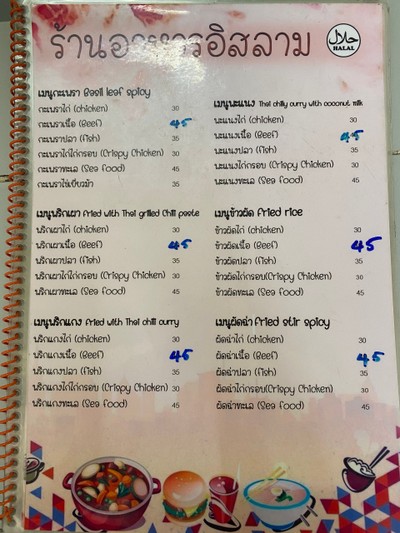 ร้านอาหารอิสลาม
حلال
HALAL
เมนูกะเพรา Basil leaf spicy
กะเพราไก่ (chicken) 30
กะเพราเนื้อ (Beef) 45
กะเพราปลา (fish) 35
กะเพราไก่ไก่กรอบ (Crispy Chicken) 30
กะเพราทะเล (Sea food) 45
กะเพราไข่เยี่ยวม้า 35
เมนูพะแนง Thai chilly curry with coconut milk
พะแนงไก่ (chicken) 30
พะแนงเนื้อ (Beef) 45
พะแนงปลา (fish) 35
พะแนงไก่กรอบ (Crispy Chicken) 30
พะแนงทะเล (Sea food) 45
เมนูพริกเผา fried with Thai grilled chili paste
พริกเผาไก่ (chicken) 30
พริกเผาเนื้อ (Beef) 45
พริกเผาปลา (fish) 35
พริกเผาไก่ไก่กรอบ (Crispy Chicken) 30
พริกเผาทะเล (Sea food) 45
เมนูข้าวผัด fried rice
ข้าวผัดไก่ (chicken) 30
ข้าวผัดเนื้อ (Beef) 45
ข้าวผัดปลา (fish) 35
ข้าวผัดไก่กรอบ(Crispy Chicken) 30
ข้าวผัดทะเล (Sea food) 45
เมนูพริกแกง fried with Thai chili curry
พริกแกงไก่ (chicken) 30
พริกแกงเนื้อ (Beef) 45
พริกแกงปลา (fish) 35
พริกแกงไก่ไก่กรอบ (Crispy Chicken) 30
พริกแกงทะเล (Sea food) 45
เมนูผัดฉ่า fried stir spicy
ผัดฉ่าไก่ (chicken) 30
ผัดฉ่าเนื้อ (Beef) 45
ผัดฉ่าปลา (fish) 35
ผัดฉ่าไก่กรอบ(Crispy Chicken) 30
ผัดฉ่าทะเล (Sea food) 45